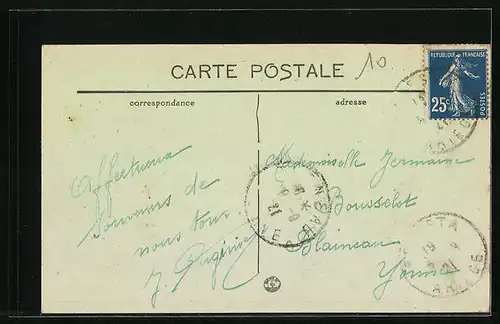 10
CARTE POSTALE
REPUBLIQUE FRANÇAISE
25c
POSTES
correspondance
adresse
Affectueux
souvenirs de
nous tous.
Mademoiselle Germaine
Rousselot
Blaineau
Yonne